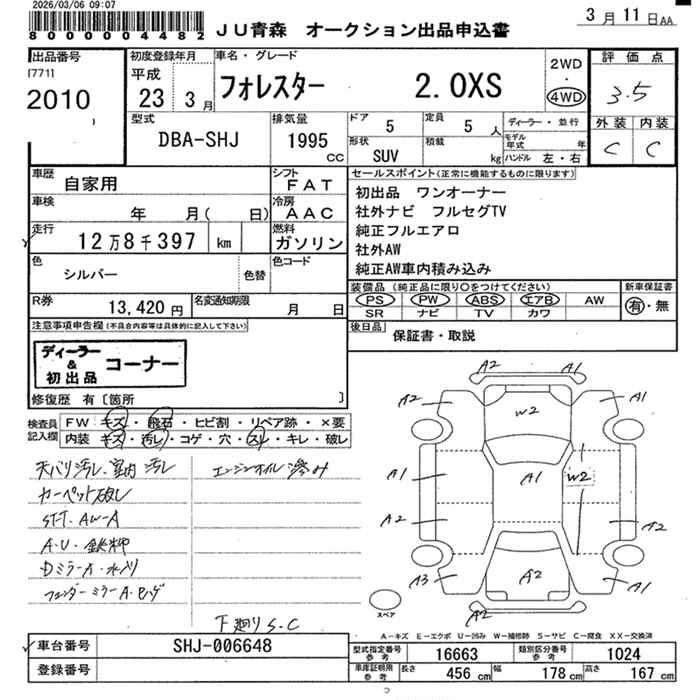 2026/03/06 09:07
8 0 0 0 0 0 0 4 4 8 2
JU青森 オークション出品申込書
3月11日AA
出品番号
[771]
2010
初度登録年月
平成
23 3月
車名・グレード
フォレスター 2.0XS
2WD
・
4WD
評価点
3.5
外装 内装
C C
型式
DBA-SHJ
排気量
1995 CC
ドア 5
定員 5 人
形状 SUV
積載 kg
ディーラー・並行
モデル年式 年
ハンドル 左・右
車歴
自家用
シフト
FAT
車検
年 月( 日)
冷房
AAC
走行
12万8千397 km
燃料
ガソリン
色
シルバー
色替
色コード
R券
13,420円
名変通知期限
月 日
セールスポイント(正常に機能するものに限ります)
初出品 ワンオーナー
社外ナビ フルセグTV
純正フルエアロ
社外AW
純正AW車内積み込み
装備品(純正品に限り○をつけてください)
PS PW ABS エアB AW
SR ナビ TV カワ
新車保証書
有・無
後日品
保証書・取説
注意事項申告欄(不具合内容等は具体的に記入して下さい)
ディーラー
&
初出品
コーナー
修復歴 有〔箇所 〕
検査員
記入欄
FW キズ・飛石・ヒビ割・リペア跡・×要
内装 キズ・汚レ・コゲ・穴・スレ・キレ・破レ
天バリ汚レ、室内汚レ
カーペット破レ
STT・AW-A
A・U・鉄粉
Dミラー A・水入リ
フェンダーミラー A・ハゲ
エンジンオイル滲み
下廻り S・C
A2 A1
A2 W2 A1
A1 A1 W2
A2 A2
A3 A2 A1
A2
スペア
A-キズ E-エクボ U-凹み W-補修跡 S-サビ C-腐食 XX-交換済
車台番号
SHJ-006648
登録番号
型式指定番号
参考
16663
類別区分番号
参考
1024
車庫証明用
参考
長さ 456 cm
幅 178 cm
高さ 167 cm